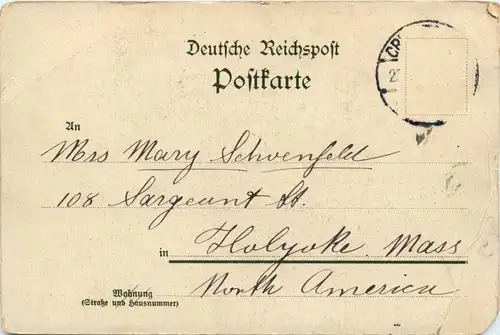 Deutsche Reichspost
Postkarte
An
Mrs Mary Schoenfeld
108 Sargeant St.
in Holyoke. Mass
North America
Wohnung
(Straße und Hausnummer)